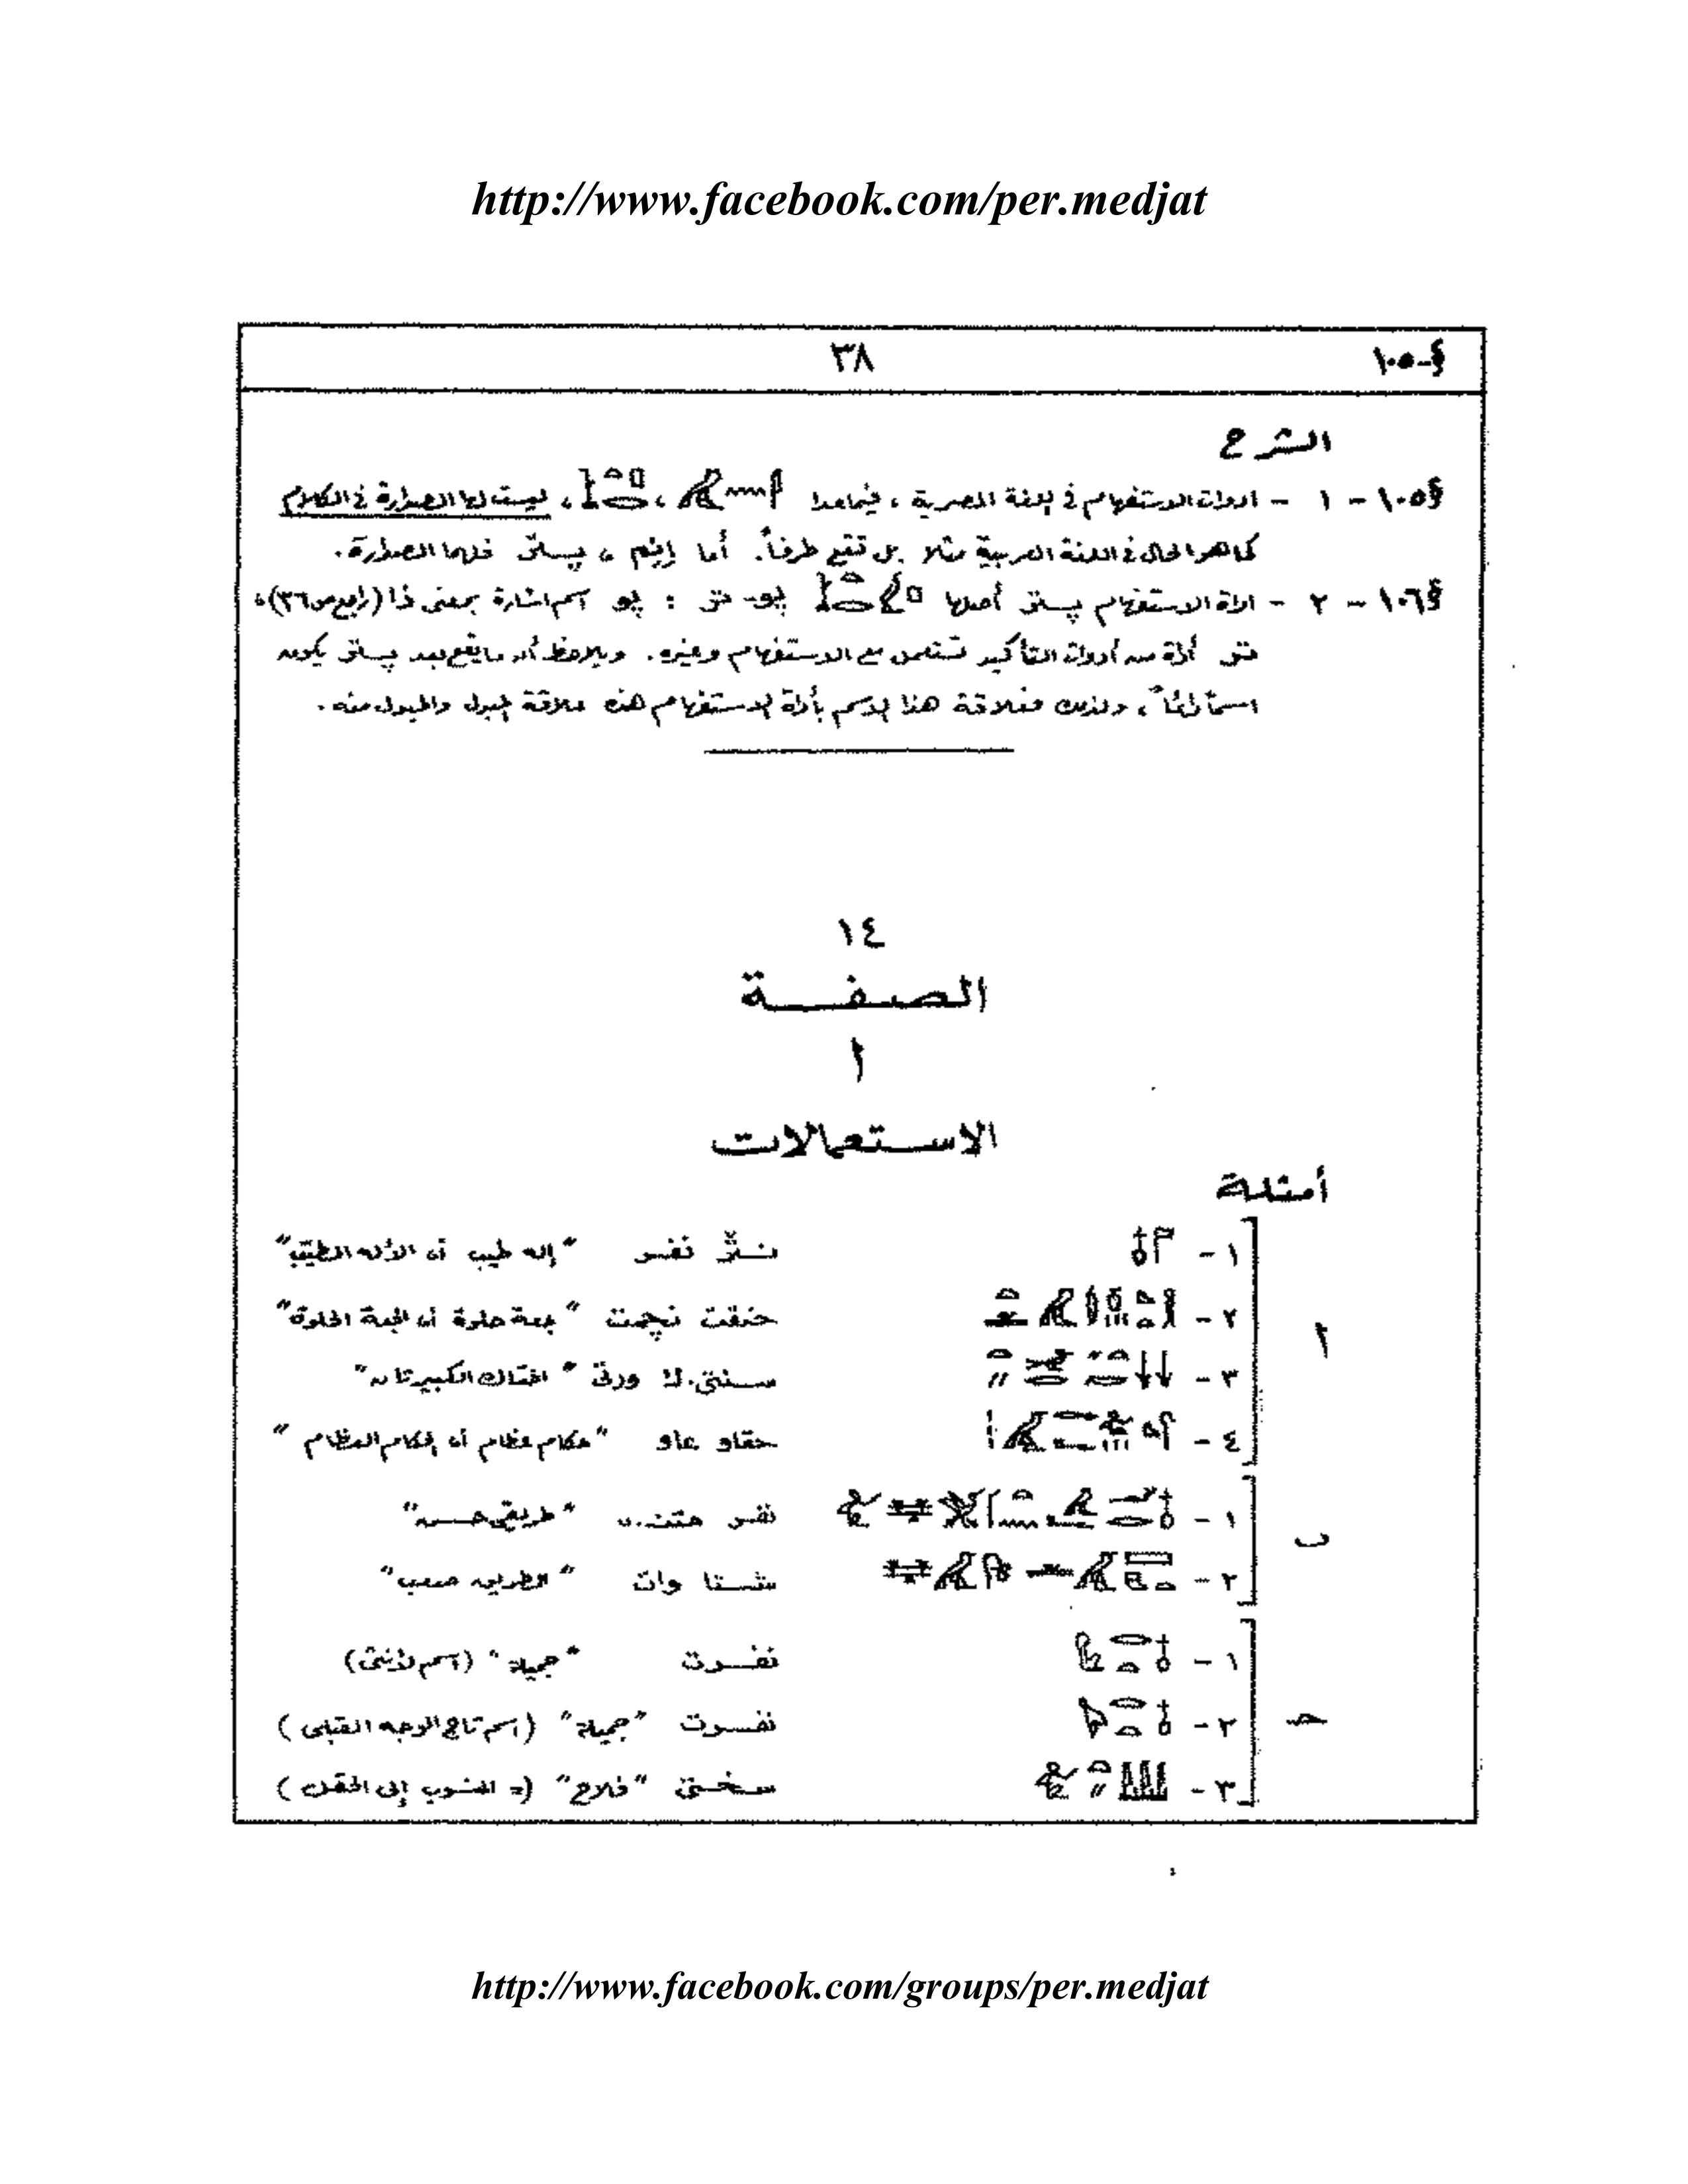 http://www.facebook.com/per.medjat
§-١٠٥ ٣٨
الشرح
§١٠٥ - ١ - أدوات الاستفهام في اللغة المصرية ، فيما عدا ، ، ليست لها الصدارة في الكلام
كما هو الحال في اللغة العربية مثلا بل تقع طرفاً. أما إنم ، پستى فلهما الصدارة.
§١٠٦ - ٢ - أداة الاستفهام پستى أصلها پو- تى : پو اسم اشارة بمعنى ذا (راجع ص ٣٦)،
تى أداة من أدوات التأكيد تستعمل مع الاستفهام وغيره. ويلاحظ أن ما يقع بعد پستى يكون
اسمًا دائمًا ، ولذلك فعلاقة هذا الاسم بأداة الاستفهام هذه علاقة البدل والمبدل منه.
١٤
الصفة
ا
الاستعمالات
أمثلة
ا
١ - نثر نفر "إله طيب أو الإله الطيّب"
٢ - حنقت نچمت "جعة حلوة أو الجعة الحلوة"
٣ - سنتى.ك ورتى "اختاك الكبيرتان"
٤ - حقاو عاو "حكام عظام أو الحكام العظام"
ب
١ - نفر متن.ى "طريقي حسن"
٢ - شتا وات "الطريق صعب"
حـ
١ - نفرت "جميلة" (اسم لأنثى)
٢ - نفرت "جميلة" (اسم تاج الوجه القبلى)
٣ - سختى "فلاح" (= المنسوب إلى الحقل)
http://www.facebook.com/groups/per.medjat